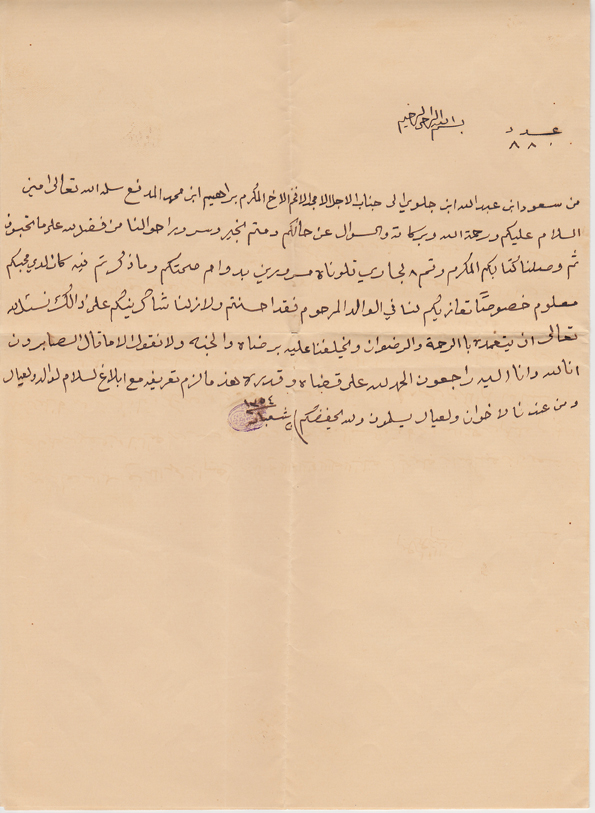 بسم الله الرحمن الرحيم
عدد
٨٨٠
من سعود ابن عبدالله ابن جلوي الى جناب الاجل الامجد الافخم الاخ المكرم براهيم ابن محمد المدفع سلمه الله تعالى امين
السلام عليكم ورحمة الله وبركاته والسوال عن حالكم ودمتم ابخير وسرور احوالنا من فضل لله على ماتحبون
ثم وصلنا كتابكم المكرم رقم ٨ لجاري تلوناه مسرورين بدوام صحتكم وماذكرتم فيه كان لدي محبكم
معلوم خصوصًا تعازيكم لنا في الوالد المرحوم فقد احسنتم ولازلنا شاكرينكم على ذالك نسئل الله
تعالى ان يتغمده باالرحمة والرضوان ويخلفنا عليه برضاه والجنه ولانقول الا ماقال الصابرون
انا لله وانا اليه راجعون الحمد لله على قضاه وقدره هذ مالزم تعريفه مع ابلاغ لسلام لوالد ولعيال
ومن عندنا لاخوان ولعيال يسلمون ولله يحفضكم
شعبان ١٣٥٤